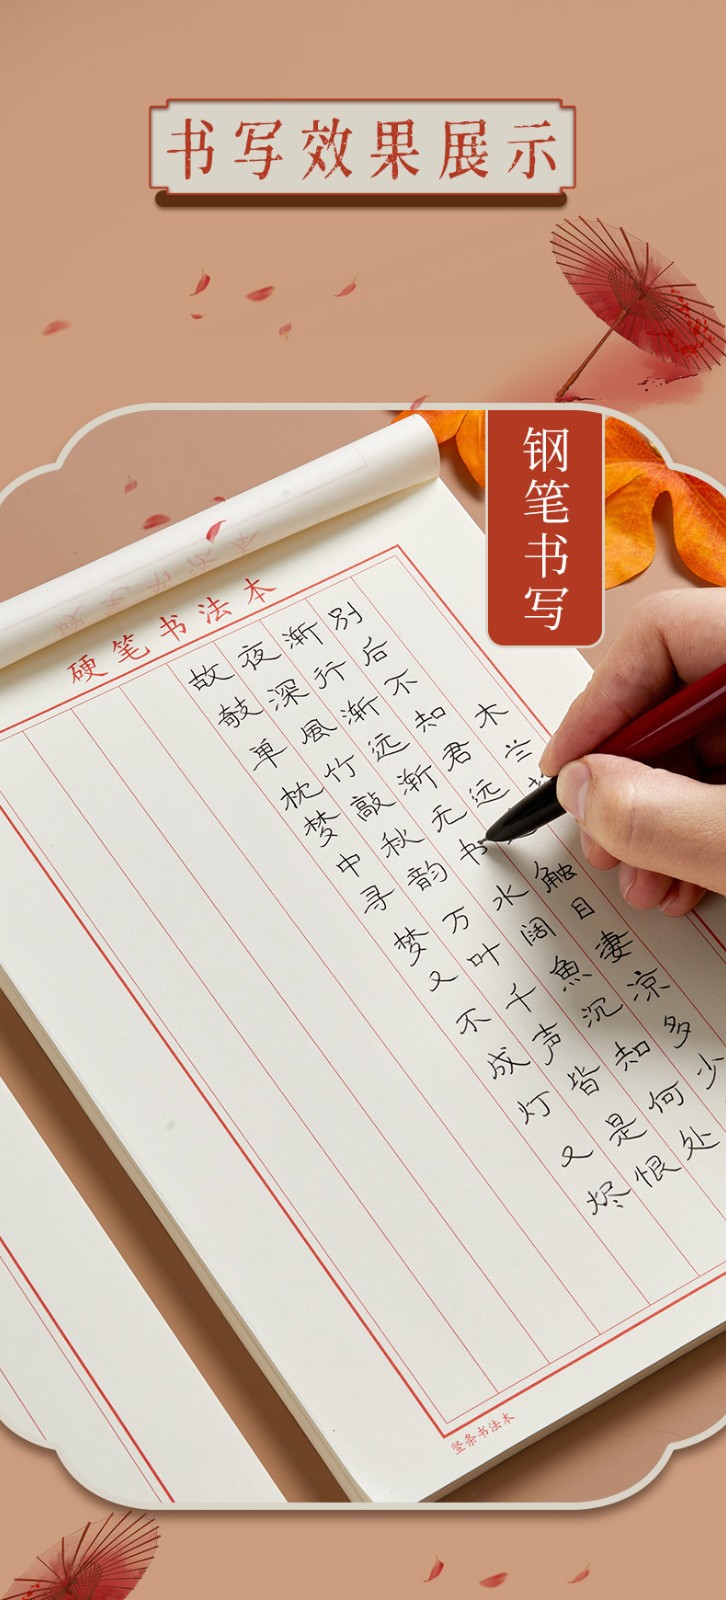 书写效果展示
钢笔书写
硬笔书法本
木兰
别后不知君远
触目凄凉多少
渐行渐远渐无书
水阔魚沉知何处
夜深風竹敲秋韵
万叶千声皆是恨
故攲单枕梦中寻
梦又不成灯又烬
竖条书法本